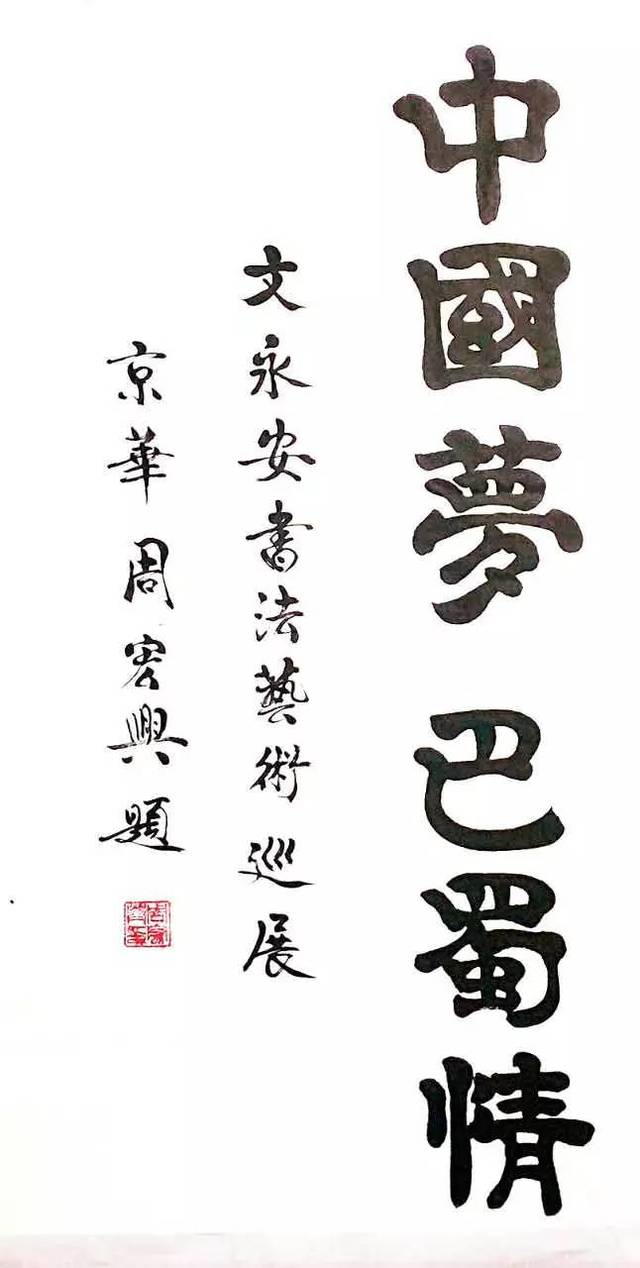 中國夢 巴蜀情
文永安書法藝術巡展
京華 周宏興題